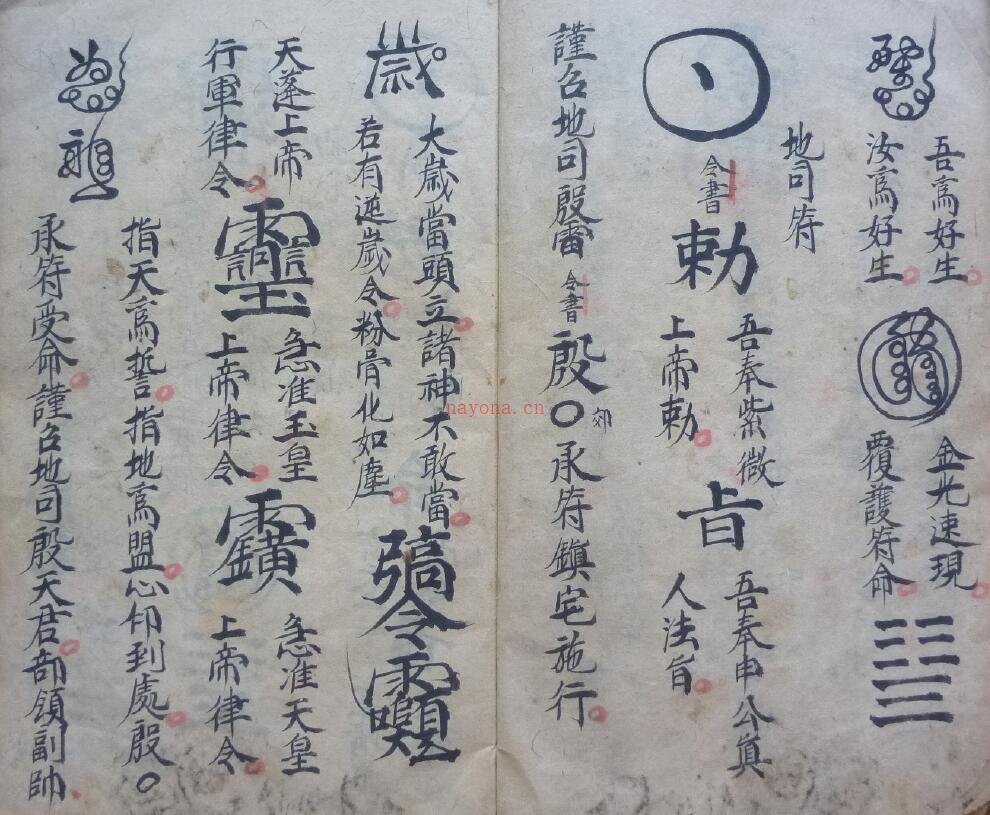 吾爲好生
汝爲好生
金光速現
覆護符命
地司符
令書
勅
吾奉紫微
上帝勅
旨
吾奉申公真
人法旨
謹召地司殷雷
令書
殷〇
郊
承符鎮宅施行
歲
大歲當頭立諸神不敢當
若有逆歲令粉骨化如塵
令
天蓬上帝
行軍律令
急准玉皇
上帝律令
急准天皇
上帝律令
指天爲誓指地爲盟心印到處殷〇
承符受命謹召地司殷天君部領副帥
nayona.cn